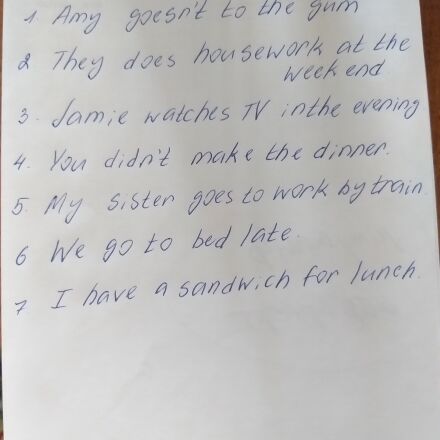 1. Amy goesn't to the gum
2 They does housework at the
week end
3. Jamie watches TV inthe evening
4. You didn't make the dinner.
5. My sister goes to work by train.
6 We go to bed late.
7 I have a sandwich for lunch.